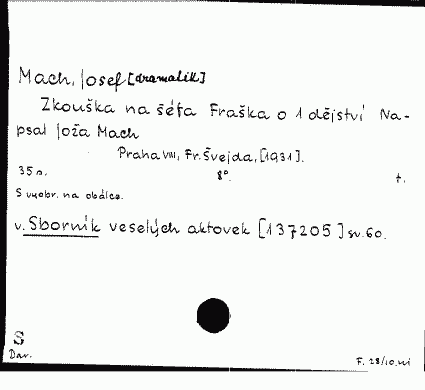 Mach, Josef [dramatik]
Zkouška na šéfa Fraška o 1 dějství Na-
psal Joža Mach
Praha VIII, Fr. Švejda, [1931].
35 s. 8°. t.
S vyobr. na obálce.
v. Sborník veselých aktovek [137205] sv. 60.
S
Dar. F. 28/10.